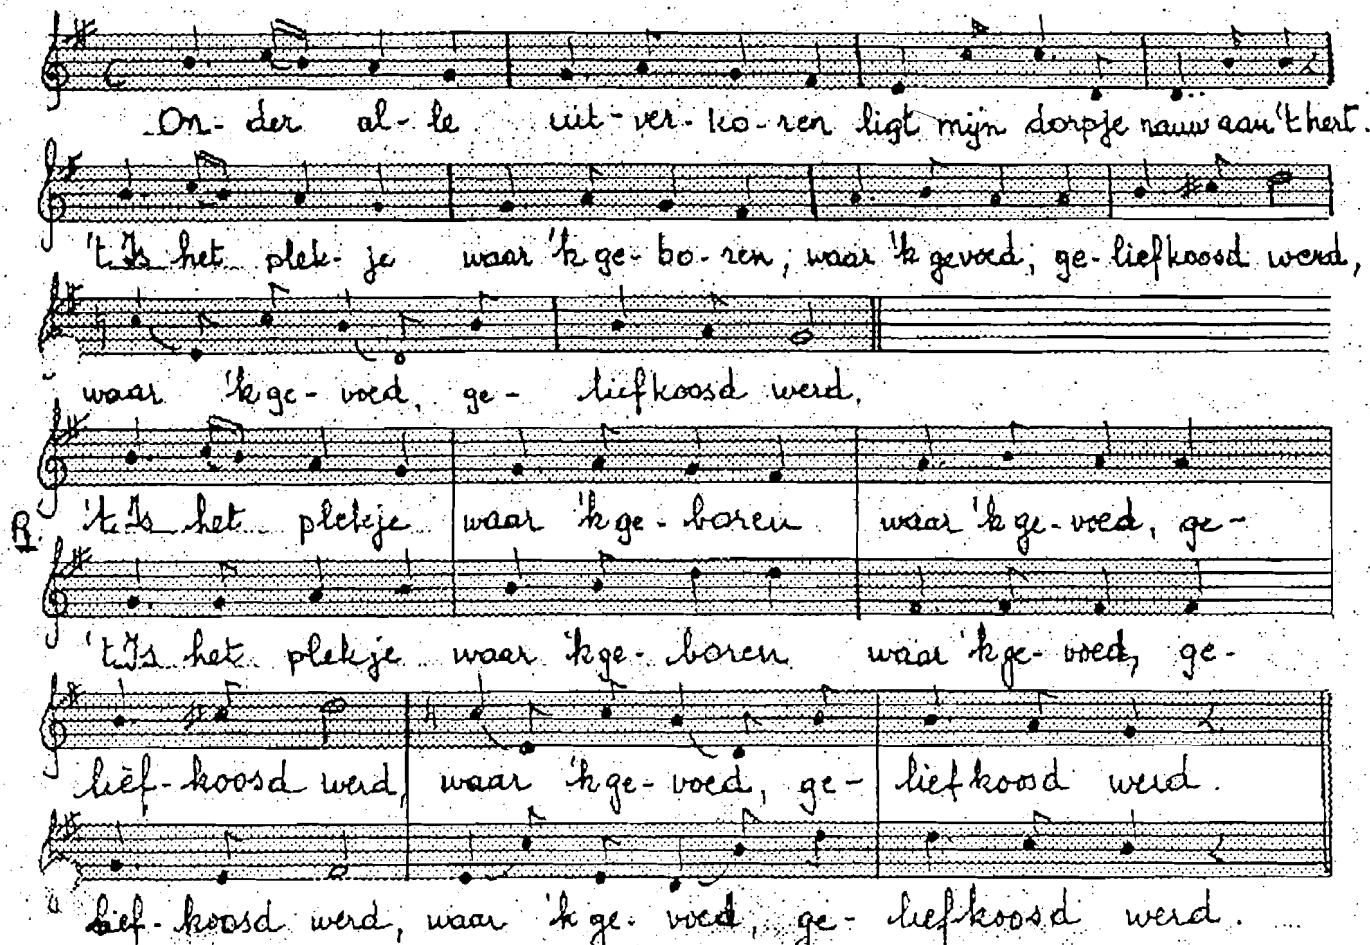 On- der al- le uit- ver- ko- ren ligt mijn dorpje nauw aan 't hert.
't Is het plek- je waar 'k ge- bo- ren, waar 'k gevoed, ge- liefkoosd werd,
waar 'k ge- voed, ge- liefkoosd werd.
't Is het plekje waar 'k ge- boren waar 'k ge- voed, ge-
R.
't Is het plekje waar 'k ge- boren waar 'k ge- voed, ge-
lief- koosd werd, waar 'k ge- voed, ge- liefkoosd werd.
lief- koosd werd, waar 'k ge- voed, ge- liefkoosd werd.